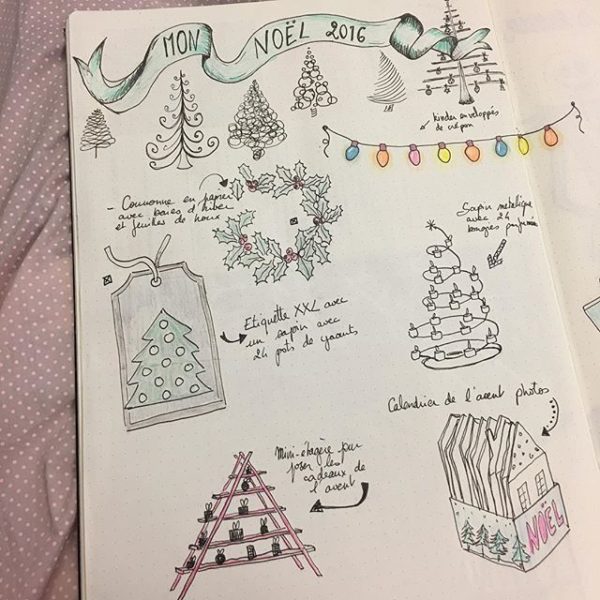 MON NOËL 2016
kinder enveloppés
de crépon
- Couronne en papier
avec baies d'hiver
et feuilles de houx
Sapin métallique
avec 24
bougies parfumées
Etiquette XXL avec
un sapin avec
24 pots de yaourts
Calendrier de l'avent photos
Mini-étagère pour
poser les
cadeaux de
l'avent
NOËL